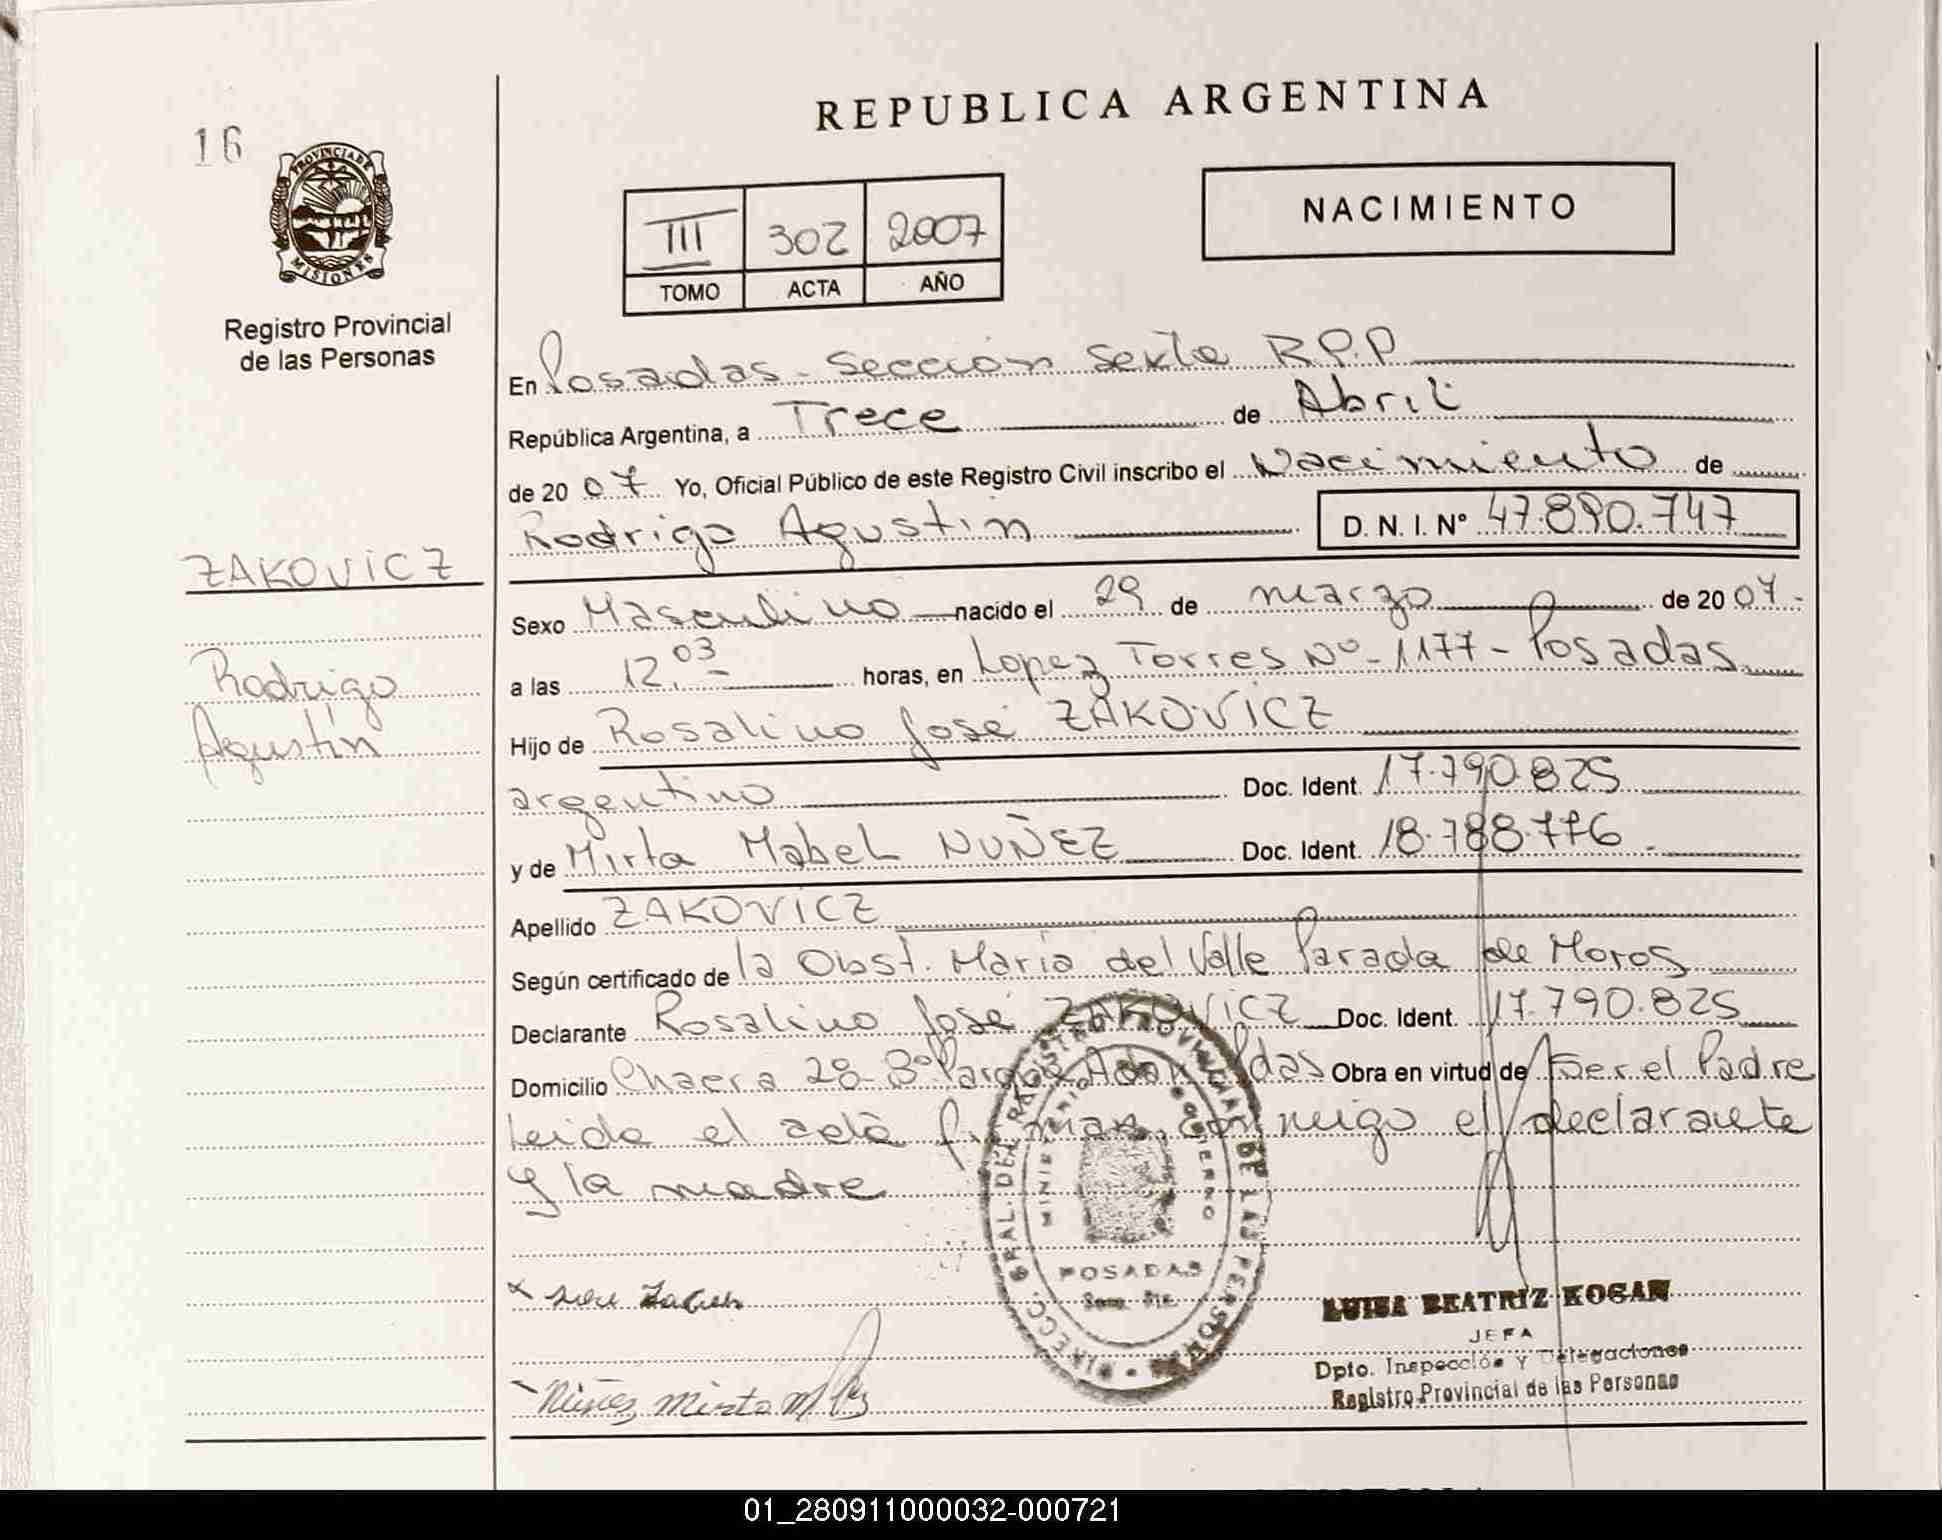 REPUBLICA ARGENTINA
16
PROVINCIA DE MISIONES
NACIMIENTO
III 302 2007
TOMO ACTA AÑO
Registro Provincial
de las Personas
En Posadas - Sección Sexta R.P.P
República Argentina, a Trece de Abril
de 20 07 Yo, Oficial Público de este Registro Civil inscribo el Nacimiento de
Rodrigo Agustín D. N. I. Nº 47.890.747
ZAKOVICZ
Rodrigo
Agustín
Sexo Masculino nacido el 29 de marzo de 20 07 -
a las 12,03 horas, en Lopez Torres Nº - 1177 - Posadas
Hijo de Rosalino José ZAKOVICZ
argentino Doc. Ident. 17.790.825
y de Mirta Mabel NUÑEZ Doc. Ident. 18.788.776
Apellido ZAKOVICZ
Según certificado de la Obst. María del Valle Parada de Moros
Declarante Rosalino José ZAKOVICZ Doc. Ident. 17.790.825
Domicilio Chacra 28 - Bº Parque Adam Pdas Obra en virtud de Ser el Padre
Leida el acta firman conmigo el declarante
y la madre
DIRECC. GRAL. DEL REGISTRO PROVINCIAL DE LAS PERSONAS
MINISTERIO DE GOBIERNO
POSADAS
Nuñez Mirta M
LUISA BEATRIZ KOGAN
JEFA
Dpto. Inspección Y Delegaciones
Registro Provincial de las Personas
01_280911000032-000721